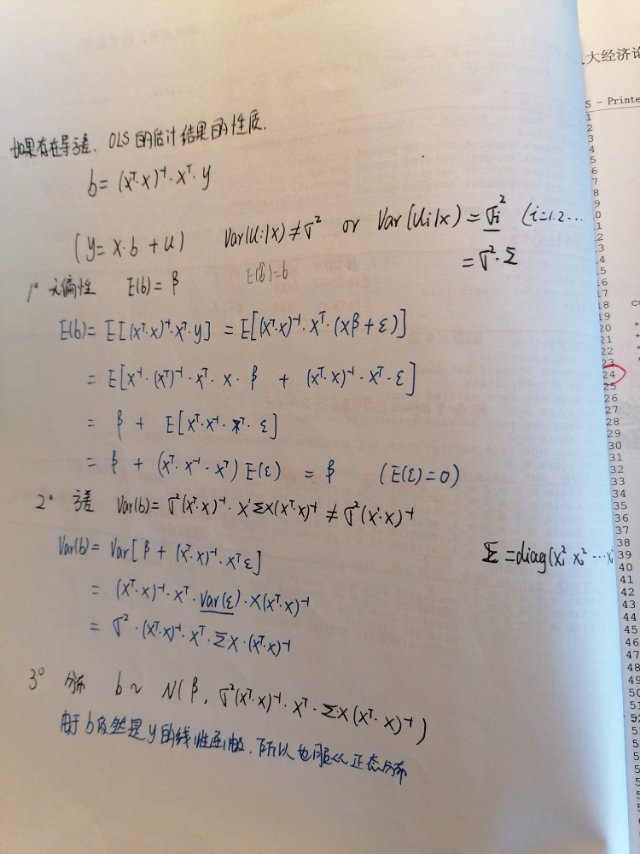 如果存在异方差、OLS的估计结果的性质.
b = (xᵀ·x)⁻¹·xᵀ·y
(y = x·b + u) Var(ui|x) ≠ σ² or Var(ui|x) = σi² (i=1.2...
= σ²·Σ
1° 无偏性 E(b) = β E(b̂)=b
E(b) = E[(xᵀ·x)⁻¹·xᵀ·y] = E[(xᵀ·x)⁻¹·xᵀ·(xβ+ε)]
= E[x⁻¹·(xᵀ)⁻¹·xᵀ·x·β + (xᵀ·x)⁻¹·xᵀ·ε]
= β + E[xᵀ·x⁻¹·xᵀ·ε]
= β + (xᵀ·x⁻¹·xᵀ) E(ε) = β (E(ε)=0)
2° 方差 Var(b) = σ²(xᵀ·x)⁻¹·x'Σx(xᵀ·x)⁻¹ ≠ σ²(x'·x)⁻¹
Var(b) = Var[β + (xᵀ·x)⁻¹·xᵀε]
Σ = diag(x₁² x₂² ⋯ x
= (xᵀ·x)⁻¹·xᵀ·Var(ε)·x(xᵀ·x)⁻¹
= σ²·(xᵀ·x)⁻¹·xᵀ·Σx·(xᵀ·x)⁻¹
3° 分布 b ~ N(β, σ²(xᵀ·x)⁻¹·xᵀ·Σx(xᵀ·x)⁻¹)
由于b仍然是y的线性函数, 所以也服从正态分布
大经济论
S - Printe
1
2
3
4
5
6
7
8
9
10
11
12
13
14
15
16
17
18
19
20
21
22
23
24
25
26
27
28
29
30
31
32
33
34
35
36
37
38
39
40
41
42
43
44
45
46
47
48
49
50
51
52